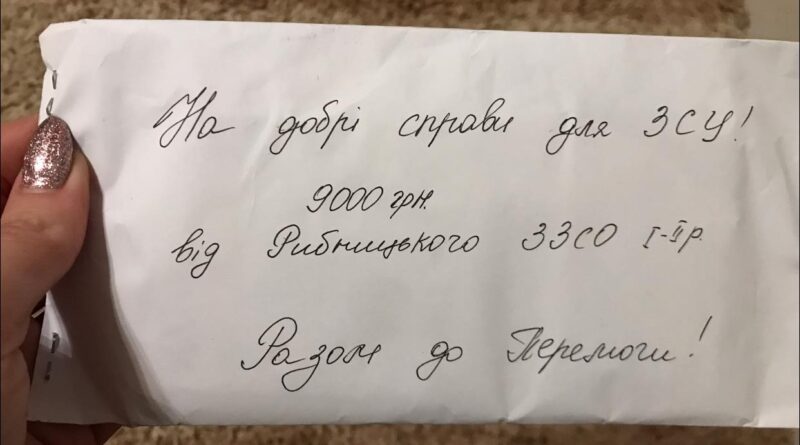 На добрі справи для ЗСУ!
9000 грн.
від Рибницького ЗЗСО І-ІІ р.
Разом до Перемоги!